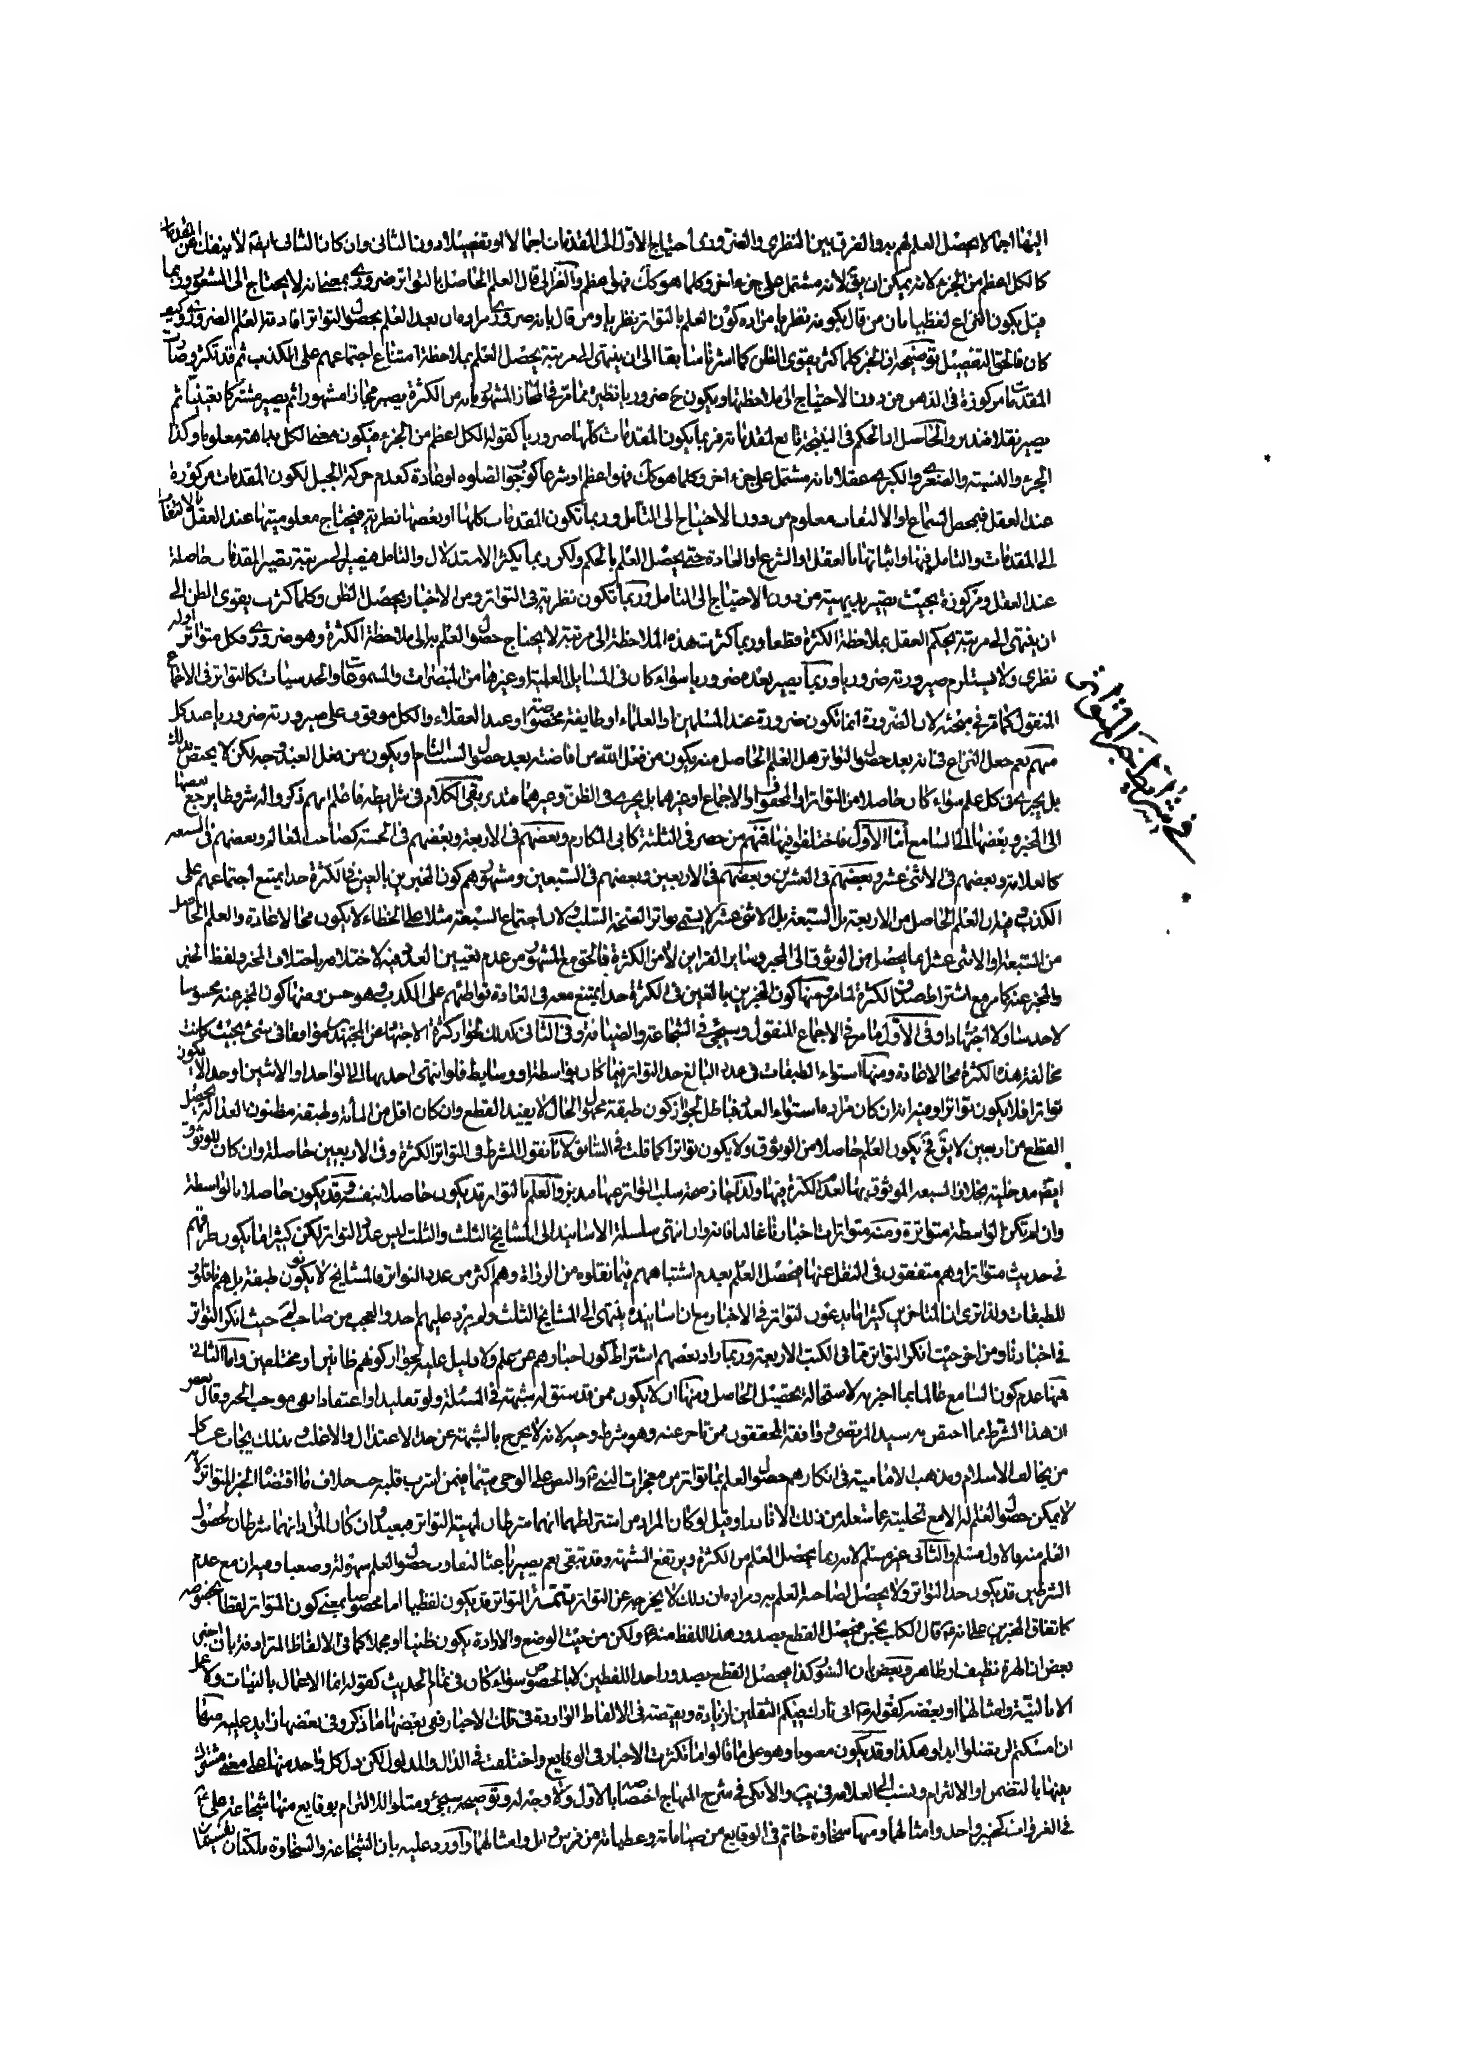 اليها اجمالا يحصل العلم به والفرق بين النظري والضروري احتياج الاول الى المقدمات اجمالا او تفصيلا دون الثاني وان كان الثاني ايضا لا ينفك عن المقدمات
كالكل اعظم من الجزء لانه يمكن ان يق لانه مشتمل على جزء اخر وكلما هو كك فهو اعظم والغزالي قال العلم الحاصل بالتواتر ضروري بمعنى انه لا يحتاج الى الشعور وربما
قيل يكون النزاع لفظيا بان من قال بكونه نظريا مراده كون العلم بالتواتر نظريا ومن قال بانه ضروري مراده ان بعد العلم بحصول التواتر افادته العلم ضروري وكيف
كان فالحق التفصيل توضيحه ان الخبر كلما كثر يقوى الظن كما اشرنا سابقا الى ان ينتهى الى مرتبة يحصل العلم بملاحظة امتناع اجتماعهم على الكذب ثم قد تكثر وصارت
المقدمات مركوزة في الذهن من دون الاحتياج الى ملاحظتها ويكون ح ضروريا نظير ما مر في المجاز المشهور بانه من الكثرة يصير مجازا مشهورا ثم يصير مشتركا تعينيا ثم
يصير نقلا فتدبر والحاصل ان الحكم في النتيجة تابع لمقدماته فربما يكون المقدمات كلها ضروريا كقوله الكل اعظم من الجزء فيكون معنى الكل بداهته معلوما وكذا
الجزء والنسبة والصغرى والكبرى عقلا بانه مشتمل على جزء اخر وكلما هو كك فهو اعظم او شرعا كوجوب الصلوة او عادة كعدم حركة الجبل لكون المقدمات مركوزة
عند العقل فبمحض السماع او الالتفات معلوم من دون الاحتياج الى التامل وربما تكون المقدمات كلها او بعضها نظرية فيحتاج معلوميتها عند العقل بالالتفات
الى المقدمات والتامل فيها واثباتها بالعقل او الشرع او العادة حتى يحصل العلم بالحكم ولكن ربما يكثر الاستدلال والتامل فيصل الى مرتبة تصير المقدمات حاصلة
عند العقل ومركوزة بحيث تصير بديهية من دون الاحتياج الى التامل وربما تكون نظرية في التواتر ومن الاخبار يحصل الظن وكلما كثرت يقوى الظن الى
ان ينتهى الى مرتبة يحكم العقل بملاحظة الكثرة قطعا وربما كثرت هذه الملاحظة الى مرتبة لا يحتاج حصول العلم به الى ملاحظة الكثرة وهو ضروري فكل متواتر اوله
نظري ولا يستلزم صيرورته ضروريا وربما يصير بعده ضروريا سواء كان في المسايل العلمية او غيرها من المبصرات والمسموعات والحدسيات كالتواتر في الاجماع
المنقول كما مر في مبحثه لان الضرورة انما تكون ضرورة عند المسلمين او العلماء او طايفة مخصوصة او عند العقلاء والكل موقوف على صيرورته ضروريا عند كل
منهم نعم حعل النزاع في انه بعد حصول التواتر هل العلم الحاصل منه يكون من فعل الله من افاضته بعد حصول السبب التام او يكون من فعل العبد وجه لكن لا يختص بذلك
بل يجري في كل علم سواء كان حاصلا من التواتر او المحفوف او الاجماع او غيرهما بل يجري في الظن وغيرهما فتدبر بقي الكلام في شرايطه فاعلم انهم ذكروا له شروطا يرجع بعضها
الى المخبر وبعضها الى السامع اما الاول فاختلفوا فيها فمنهم من حصر في الثلثة كابي المكارم وبعضهم في الاربعة وبعضهم في الخمسة كصاحب المعالم وبعضهم في السبعة
كالعلامة وبعضهم في الاثنى عشر وبعضهم في العشرين وبعضهم في الاربعين وبعضهم في السبعين ومشهورهم كون المخبرين بالغين في الكثرة حدا يمتنع اجتماعهم على
الكذب فيدل العلم الحاصل من الاربعة بل السبعة بل الاثنى عشر لا يسمى تواترا لصحة السلب لان اجتماع السبعة مثلا على الخطاء لا يكون محالا عادة والعلم الحاصل
من السبعة او الاثنى عشر انما يحصل من الوثوق الى المخبر وساير القراين لا من الكثرة فالحق مع المشهور من عدم تعيين العدد فيه لاختلافه باختلاف المخبر ولفظ الخبر
والمخبر عنه كما مر مع اشتراط صدق الكثرة لما مر ومنها كون المخبرين بالغين في الكثرة حدا يمتنع معه في العادة تواطئهم على الكذب وهو حسن ومنها كون المخبر عنه محسوسا
لا حدسا ولا اجتهادا وفي الاول ما مر في الاجماع المنقول وسيجئ في الشجاعة والضيافة وفي الثاني كذلك لجواز كثرة الاجتهاد من المجتهدين موافقا في شئ بحيث كانت
مخالفة هذه الكثرة محالا عادة ومنها استواء الطبقات في عدد البالغ حد التواتر فيما كان بواسطة او وسايط فلو انتهى احديها الى الواحد او الاثنين او حد لا يكون
تواترا فلا يكون تواترا وفيه انه ان كان مراده استواء العدد فباطل لجواز كون طبقة مجهول الحال لا يفيد القطع وان كان اقل من المأة وطبقة مظنون العدالة يحصل
القطع من اربعين لا يق فح يكون العلم حاصلا من الوثوق ولا يكون تواترا كما قلت في السابق لانا نقول الشرط في التواتر الكثرة وفي الاربعين حاصلة وان كان للوثوق
ايضا مدخلية بخلاف السبعة الموثوق بها لعدم الكثرة فيها ولذا جاز صحة سلب التواتر عنها فتدبر والعلم بالتواتر قد يكون حاصلا بنفسه وقد يكون حاصلا بالواسطة
وان لم تكن الواسطة متواترة ومنه متواترات اخبارنا غالبا فانه وان انتهى سلسلة الاسانيد الى المشايخ الثلث والثلث ليس عدد التواتر لكن كثيرا ما يكون طرقهم
في حديث متواترا وهم متفقون في النقل عنها فيحصل العلم بعدم اشتباههم فيما نقلوه من الرواة وهم اكثر من عدد التواتر فالمشايخ لا يكونون طبقة بل هم ناقلون
للطبقات ولذا ترى ان المتاخرين كثيرا ما يدعون التواتر في الاخبار مع ان اسانيده ينتهى الى المشايخ الثلث ولم يرد عليهم احد والعجب من صاحب لم حيث انكر التواتر
في اخبارنا ومن اخر حيث انكر التواتر فيما في الكتب الاربعة وربما زاد بعضهم اشتراط كون اخبارهم عن علم ولا دليل عليه لجواز كونهم ظانين او مختلفين واما الثاني
فمنها عدم كون السامع عالما بما اخبر به لاستحالة تحصيل الحاصل ومنها ان لا يكون ممن قد سبق له شبهة في المسئلة ولو تقليدا او اعتقادا نفي موجب الخبر وقال بعض
ان هذا الشرط مما اختص به سيد المرتضى ووافقه المحققون ممن تاخر عنه وهو شرط وجيه لانه لا يخرج بالشبهة عن حد الاعتدال والاغلب بذلك يجاب عن كل
من يخالف الاسلام ومذهب الامامية في انكارهم حصول العلم بما تواتر من معجزات النبي ص والنص على الوصي فيما فيمن اشرب قلبه حب خلاف ما اقتضاه الخبر المتواتر لانه
لا يمكن حصول العلم له الا مع تخليته عما شغله من ذلك الافات او قيل لو كان المراد من اشتراطهما انهما شرطان لمهية التواتر فبعيد وان كان المراد انهما شرطان لحصول
العلم منه فالاول مسلم والثاني غير مسلم لانه ربما يحصل العلم من الكثرة ويرتفع الشبهة وقد تبقى نعم يصير باعثا لتفاوت حصول العلم سهولة وصعبا وفيه ان مع عدم
الشرطين قد يكون حد التواتر ولا يحصل لصاحبه العلم به ومراده ان ذلك لا يخرجه عن التواتر تتمة التواتر قد يكون لفظيا اما مخصوصا بمعنى كون المتواتر لفظا بخصوصه
كاتفاق المخبرين على انه ص قال الكلب نجس فيحصل القطع بصدور هذا اللفظ منه ص ولكن من حيث الوضع والارادة يكون ظنيا او مجملا كما في الالفاظ المترادفة بان اخبر
بعض ان الهرة نظيف او طاهر وبعض بان السنور كذا فيحصل القطع بصدور احد اللفظين لا بالخصوص سواء كان في تمام الحديث كقوله انما الاعمال بالنيات ولا عمل
الا بالنية وامثالهما او بعضه كقوله ص اني تارك فيكم الثقلين ان زيادة ونقيصة في الالفاظ الواردة في تلك الاخبار ففي بعضها ما ذكر وفي بعضها زايد عليه منها
ان تمسكتم لن تضلوا ابدا وهكذا وقد يكون معنويا وهو على ما قالوا ما تكثرت الاخبار في الوقايع واختلفت في الدال والمدلول لكن دل كل واحد منها على معنى مشترك
بينها بالتضمن او الالتزام ونسب الى العلامة في يب والابكي في شرح المنهاج اختصاصا بالاول ولا وجه له وتوضيحه سيجئ ومثلوا للالتزام بوقايع منها شجاعة علي ع
في الغزوات كخيبر واحد وامثالهما ومنها سخاوة حاتم في الوقايع من ضيافاته وعطياته من فرس وابل وامثالهما واورد عليه بان الشجاعة والسخاوة ملكتان نفسيتان
في شرايط خبر المتواتر